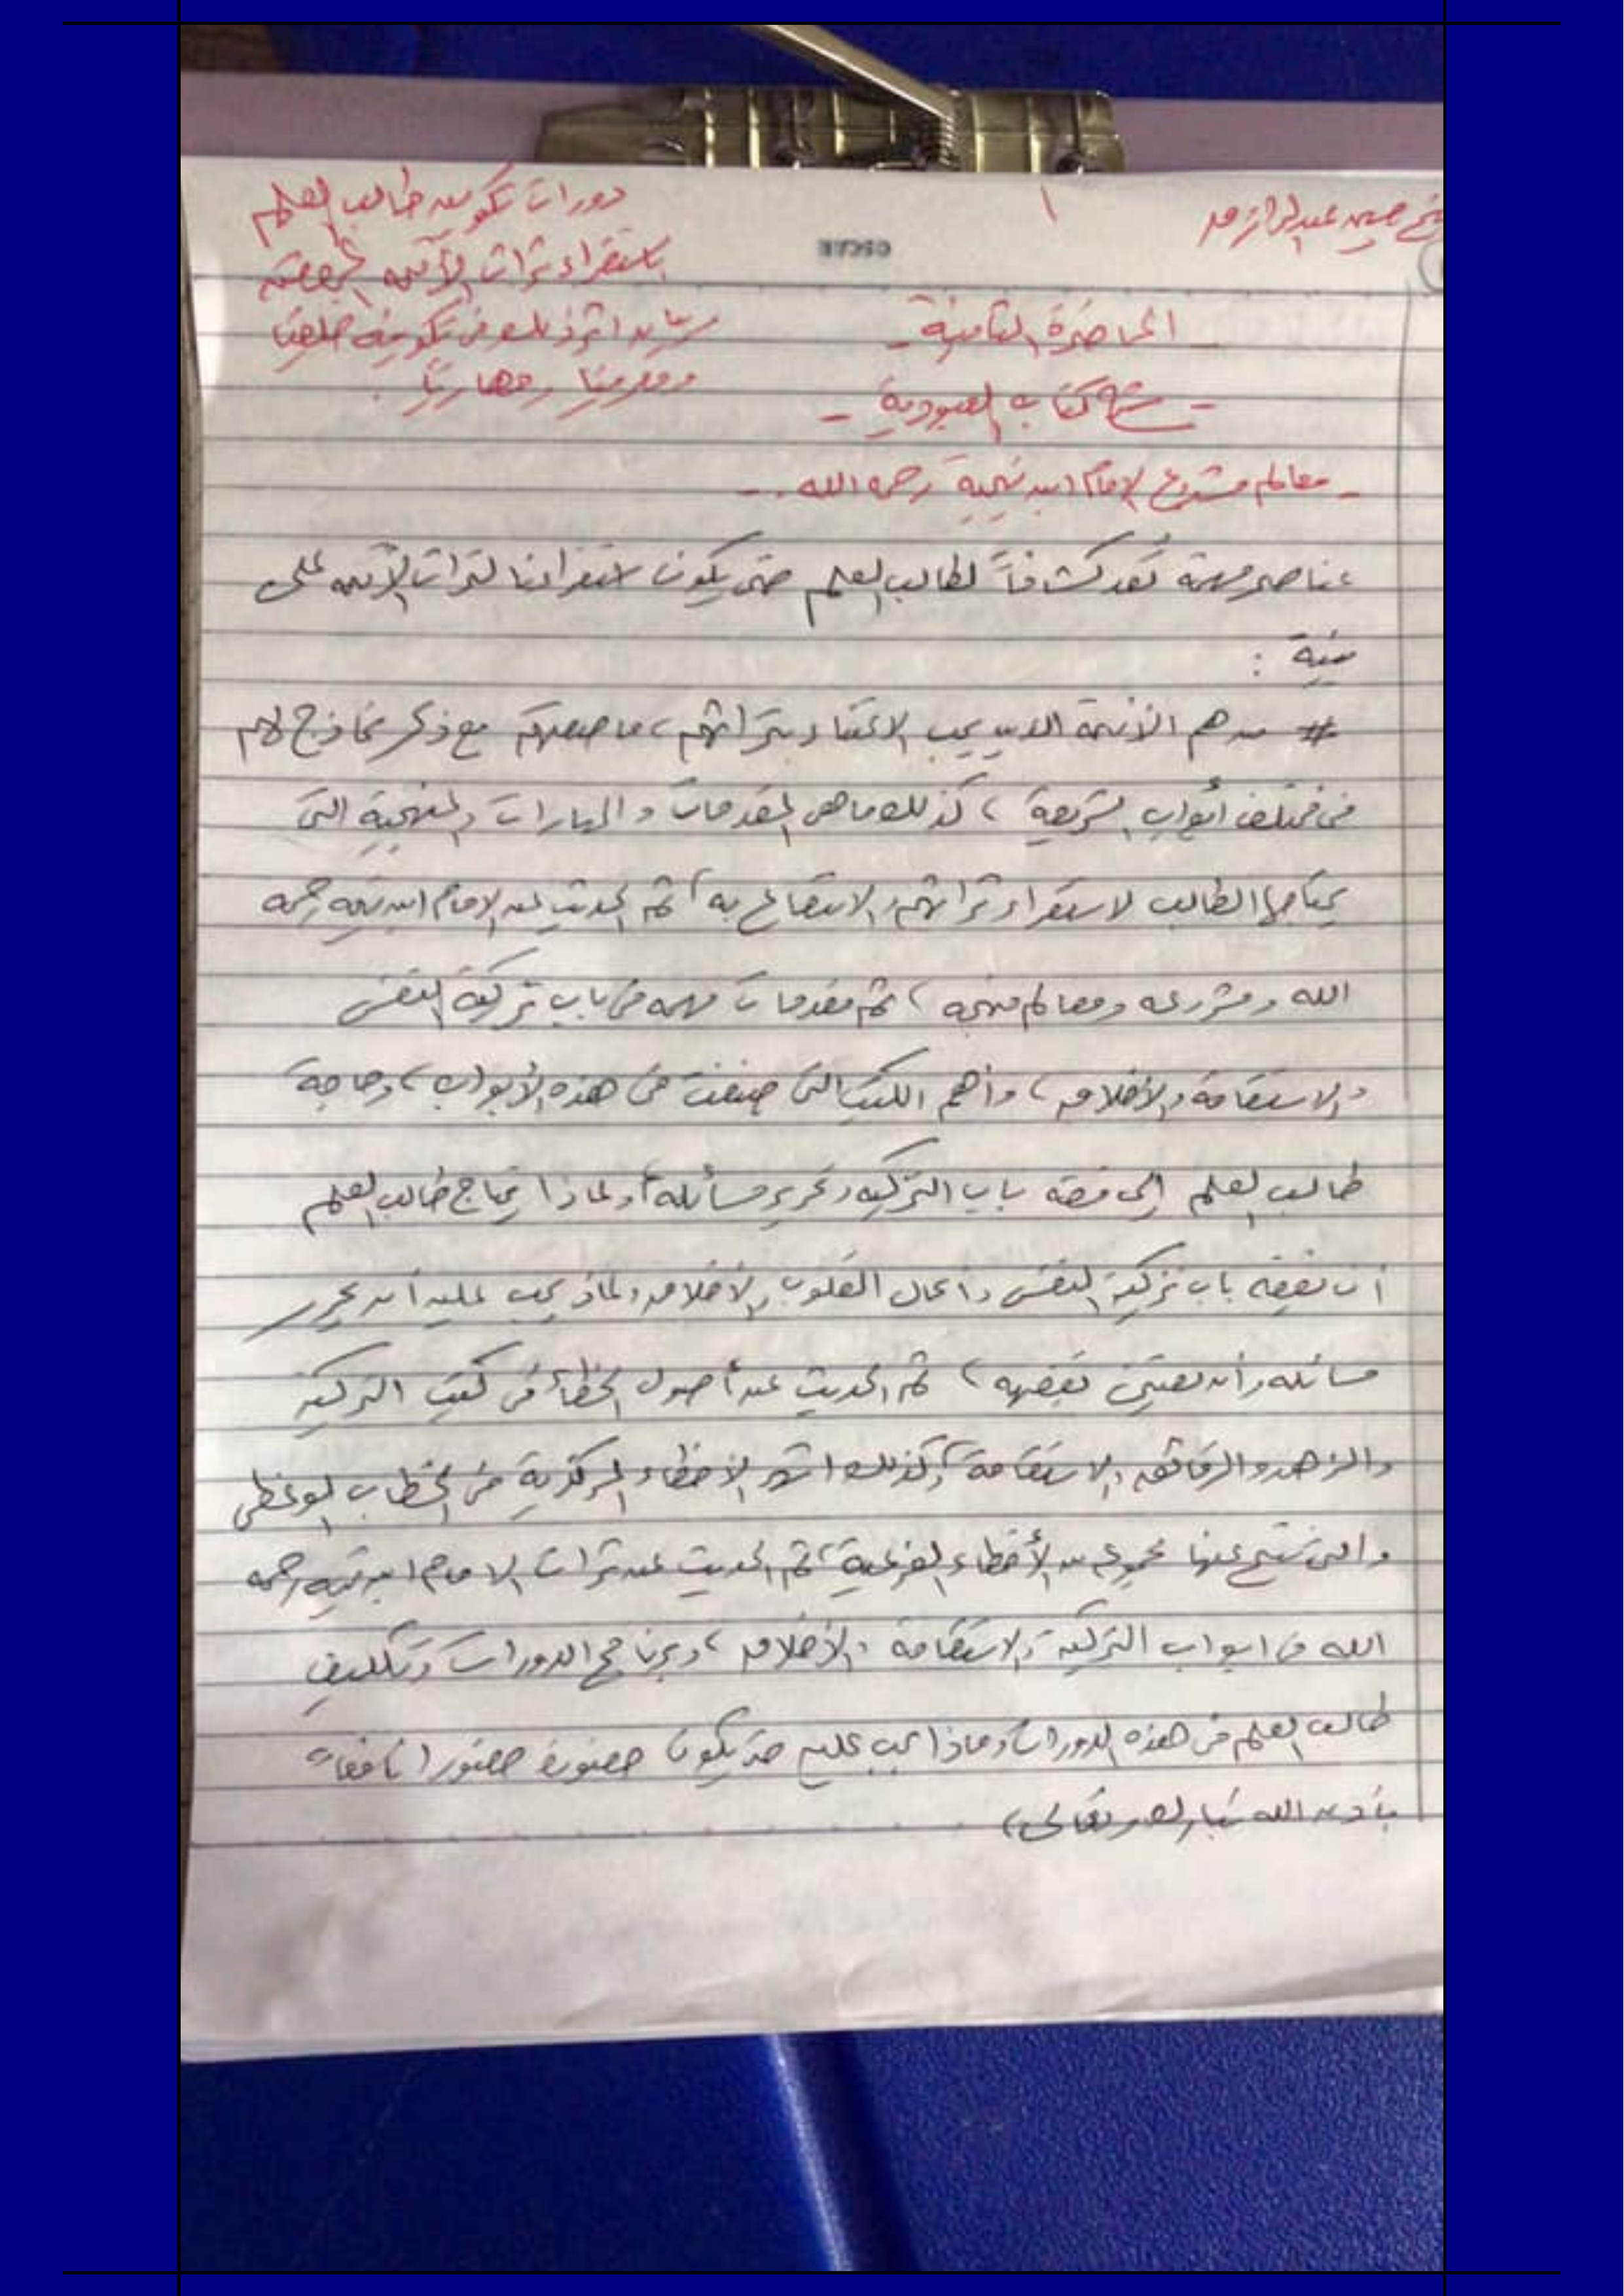 شيخ حسين عبد الرازق
١
دورات تكوين طالب العلم
باستقراء تراث الأئمة المحققين
وبيان أثر ذلك في تكوينه خلقيا
ومعرفيا ومهاريا.
OSCAR
- المحاضرة الثامنة -
- شرح كتاب العبودية -
- معالم مشروع الإمام ابن تيمية رحمه الله -
عناصر مهمة تُعد كشافاً لطالب العلم حتى يكون استقراءنا لتراث الأئمة على
بينة :
# من هم الأئمة الذين يجب الاعتناء بتراثهم، ما صفتهم مع ذكر نماذج لهم
في مختلف أبواب الشريعة، كذلك ما هي المقدمات والمهارات المنهجية التي
يحتاجها الطالب لاستقراء تراثهم والانتفاع به، ثم الحديث عن الإمام ابن تيمية رحمه
الله ومشروعه ومعالم منهجه، ثم مقدمات مهمه في باب تزكية النفس
والاستقامة والأخلاق، وأهم الكتب التي صنفت في هذه الأبواب، وحاجة
طالب العلم إلى فقه باب التزكيه وتحرير مسائله، ولماذا يحتاج طالب العلم
أن يفقه باب تزكية النفس وأعمال القلوب والأخلاق ولماذا يجب عليه أن يحرر
مسائله وأن يعتني بفقهه، ثم الحديث عن أصول الخطأ في كتب التزكية
والزهد والرقائق والاستقامة، وكذلك أشهر الأخطاء المركزية في الخطاب الوعظي
والتي نتج عنها مجموعه من الأخطاء الفرعية، ثم الحديث عن تراث الامام ابن تيميه رحمه
الله في ابواب التزكية والاستقامة والأخلاق، وبرنامج الدورات وتكليف
طالب العلم في هذه الدورات وماذا يجب عليه حتى يكون حضوره حضورا نافعا
بإذن الله تبارك وتعالى،